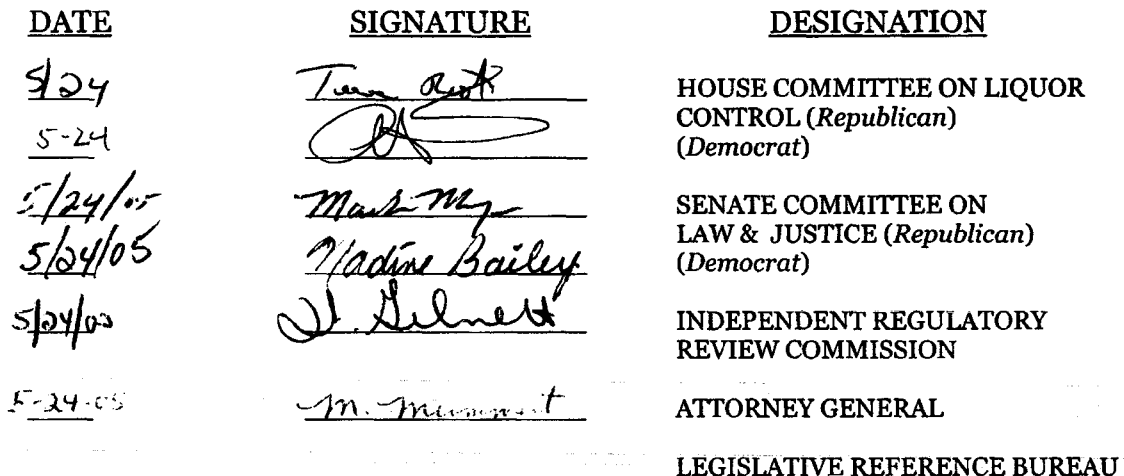 DATE SIGNATURE DESIGNATION
5/24 HOUSE COMMITTEE ON LIQUOR
CONTROL (Republican)
5-24 (Democrat)
5/24/05 SENATE COMMITTEE ON
LAW & JUSTICE (Republican)
5/24/05 Nadine Bailey (Democrat)
INDEPENDENT REGULATORY
REVIEW COMMISSION
5-24-05 M. ATTORNEY GENERAL
LEGISLATIVE REFERENCE BUREAU